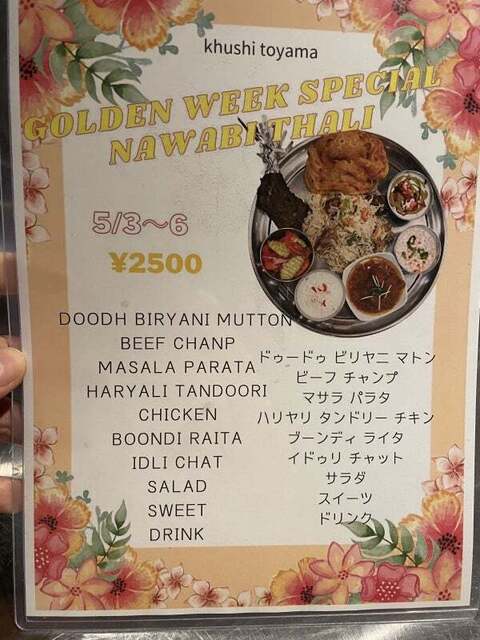 khushi toyama
GOLDEN WEEK SPECIAL
NAWABI THALI
5/3～6
¥2500
DOODH BIRYANI MUTTON
BEEF CHANP
MASALA PARATA
HARYALI TANDOORI
CHICKEN
BOONDI RAITA
IDLI CHAT
SALAD
SWEET
DRINK
ドゥードゥ ビリヤニ マトン
ビーフ チャンプ
マサラ パラタ
ハリヤリ タンドリー チキン
ブーンディ ライタ
イドゥリ チャット
サラダ
スイーツ
ドリンク